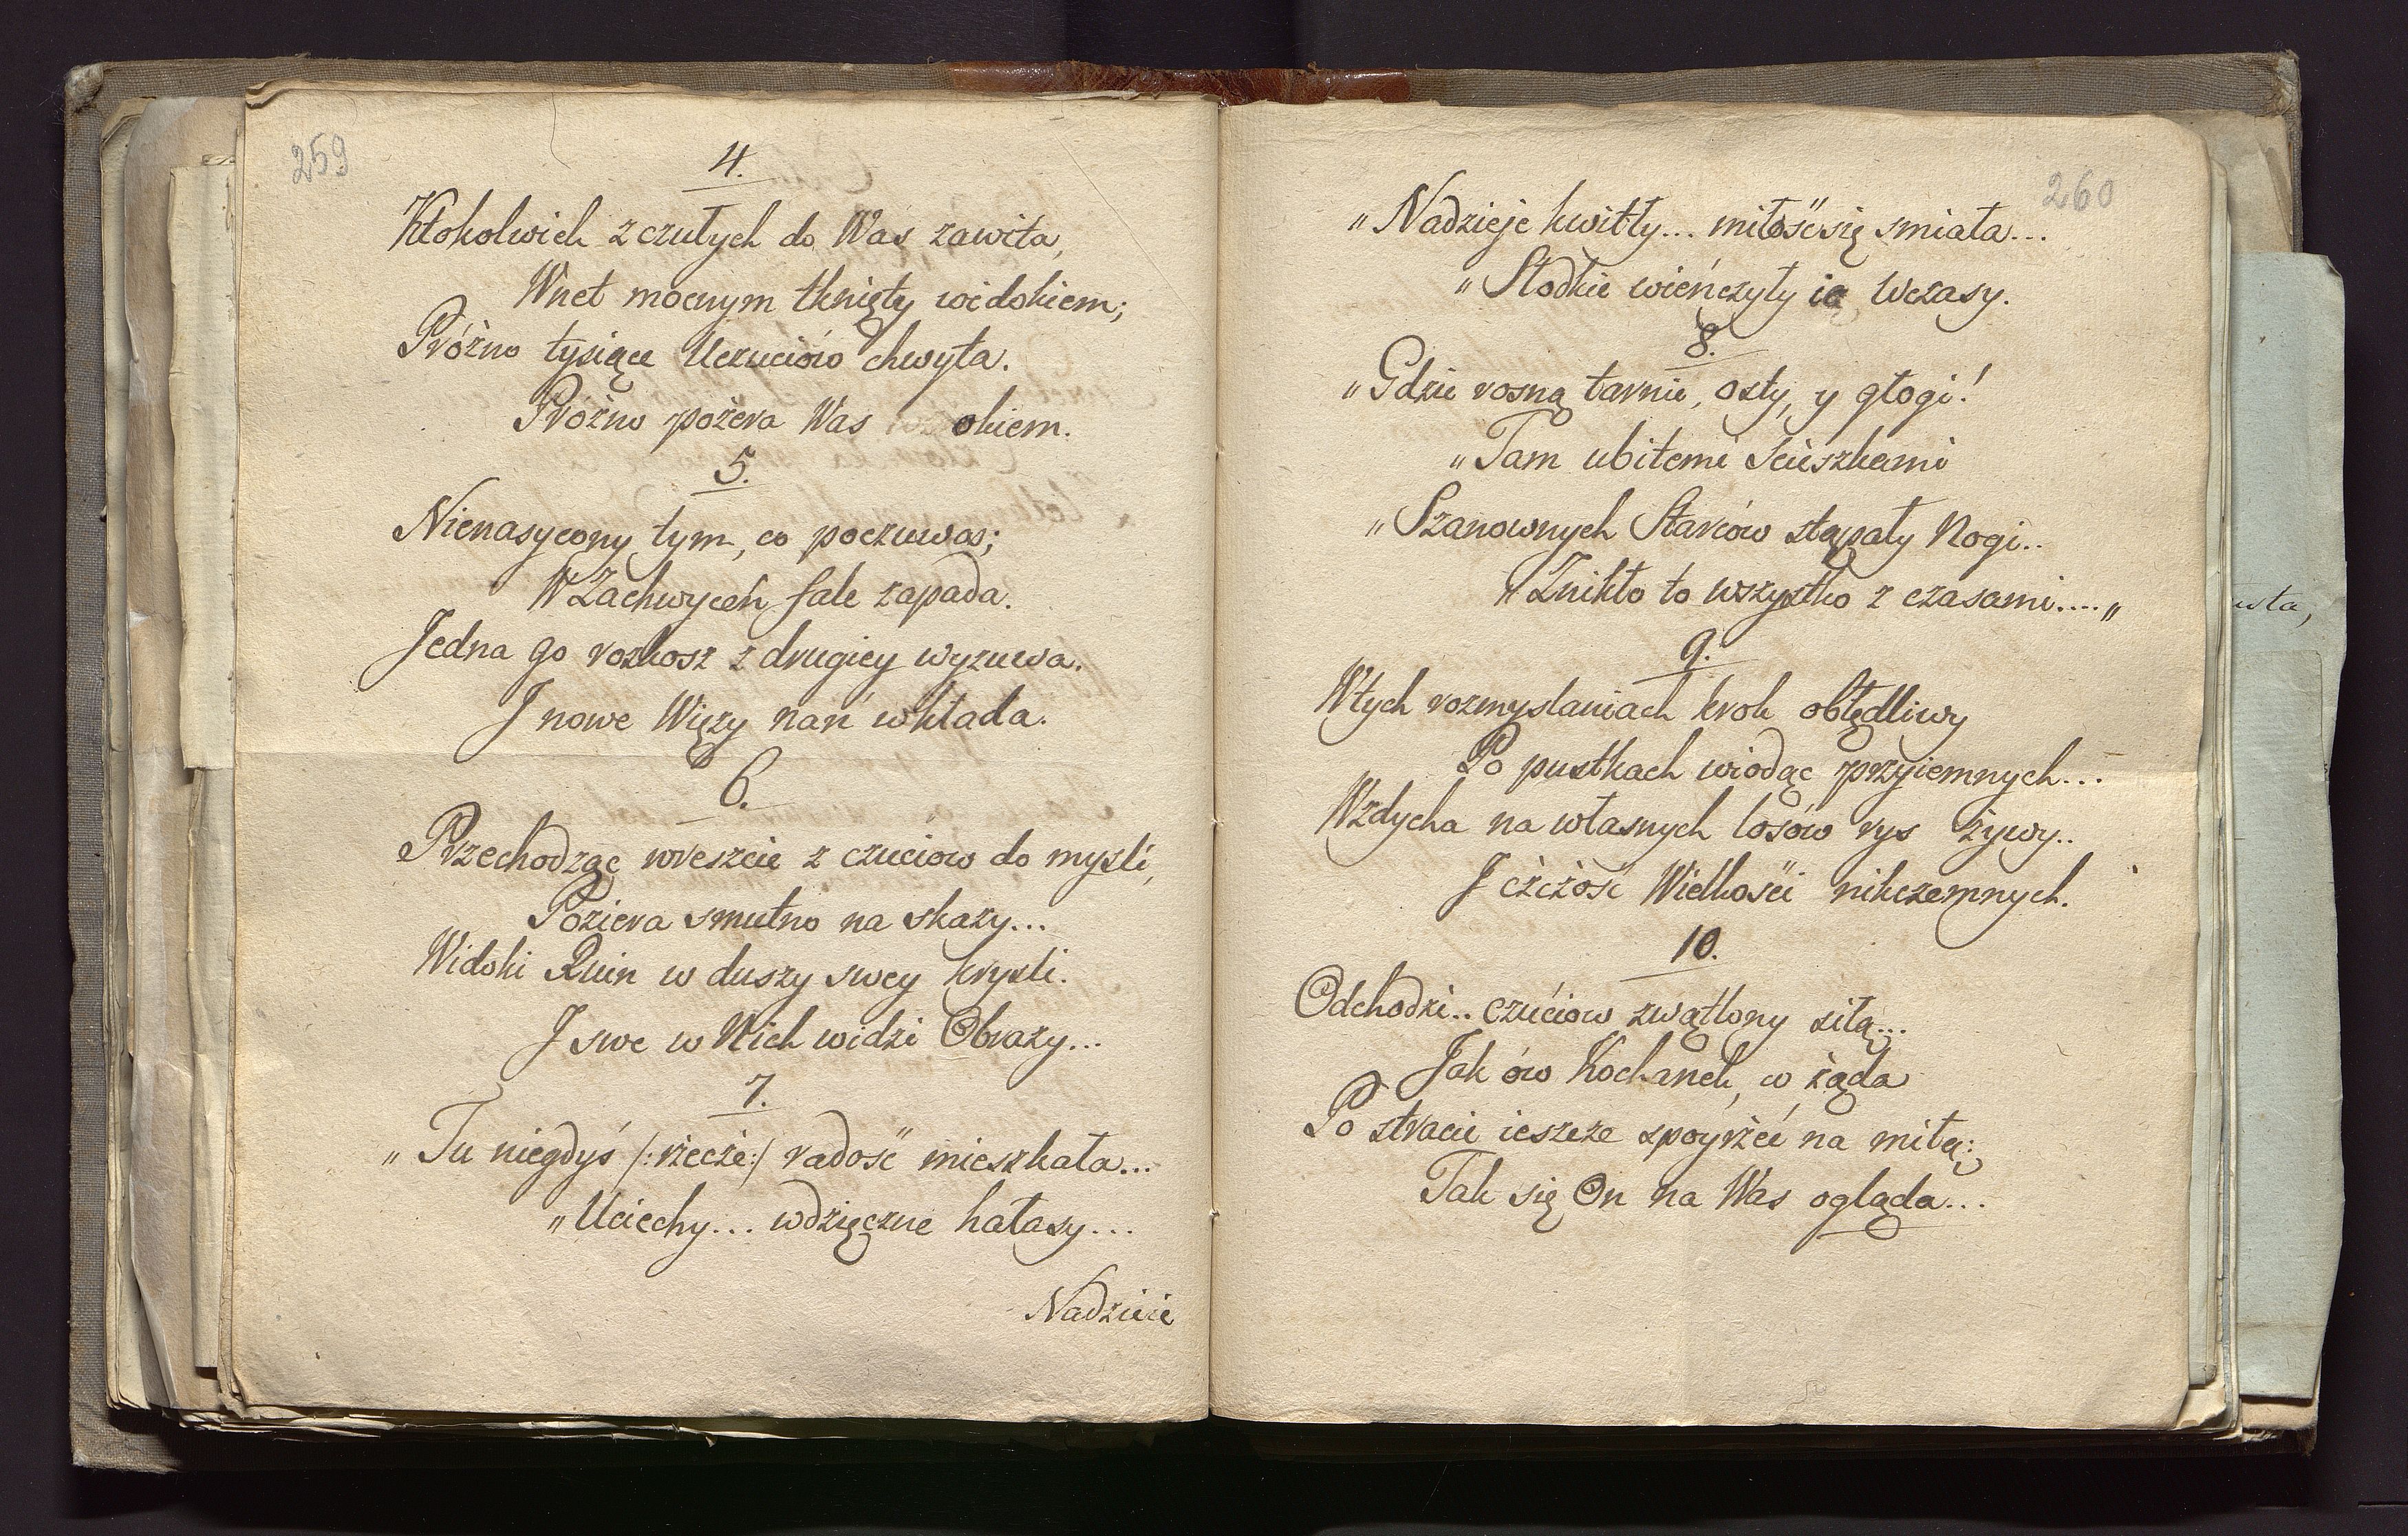 259
4.
Ktokolwiek z czułych do Was zawita,
Wnet mocnym tknięty widokiem;
Próżno tysiące Uczuciów chwyta.
Próżno pożera Was okiem.
5.
Nienasycony tym, co poczuwa;
W Zachwyceń fale zapada.
Jedna go roskosz z drugiey wyzuwa.
J nowe Więzy nań wkłada.
6.
Przechodząc wreszcie z czuciow do mysli,
Poziera smutno na skazy...
Widoki Ruin w duszy swey krysli.
J swe w Nich widzi Obrazy...
7.
„Tu niegdyś /:rzecze:/ radość mieszkała...
„Uciechy... wdzięczne hałasy...
Nadzieie
260
„Nadzieje kwitły... miłość się smiała...
„Słodkie wieńczyły ią Wczasy.
8.
„Gdzie rosną tarnie, osty, y głogi!
„Tam ubitemi scieszkami
„Szanownych Starców stąpały Nogi..
„Znikło to wszystko z czasami....„
9.
W tych rozmyslaniach krok obłędliwy
Po pustkach wiodąc przyiemnych...
Wzdycha na własnych losów rys żywy..
J czczość Wielkości nikczemnych.
10.
Odchodzi.. czuciow zwątlony siłą...
Jak ów Kochanek, co żąda
Po stracie ieszcze spoyrzeć na miłą;
Tak się On na Was ogląda...
usta,